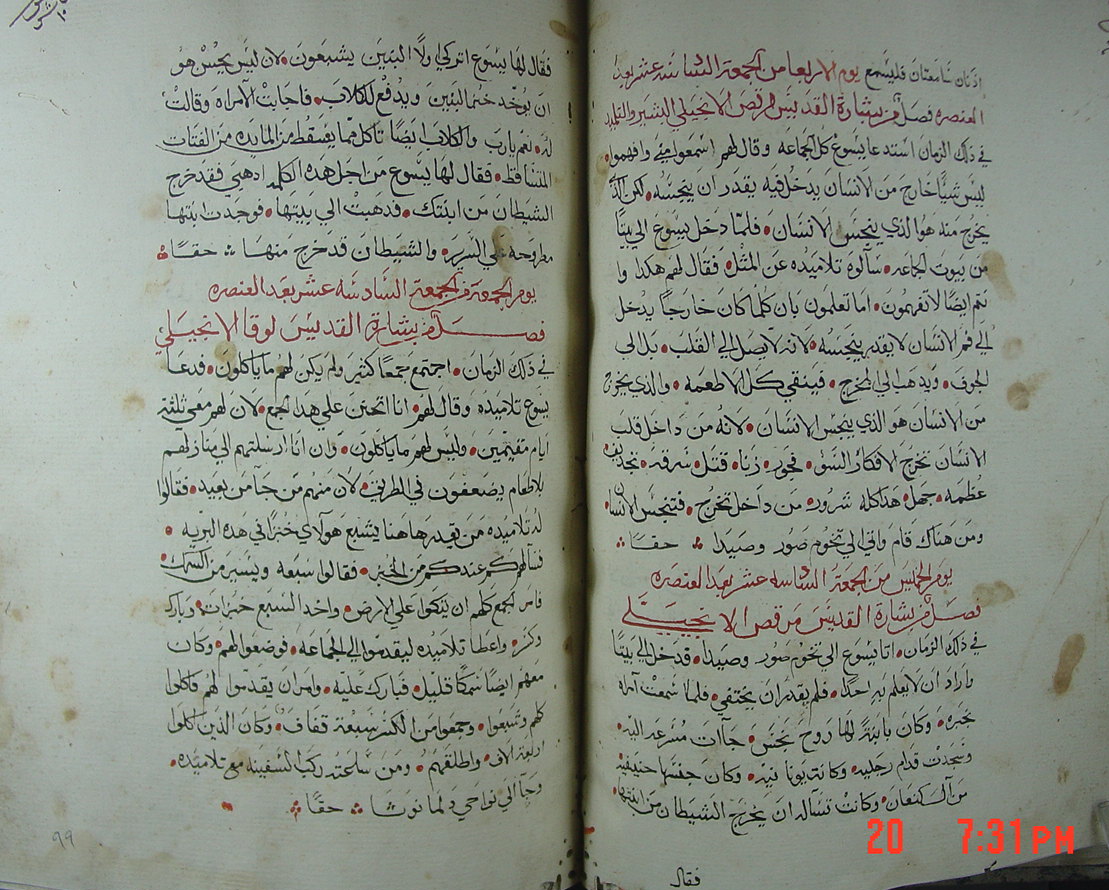 اذنان سامعتان فليسمع يوم الاربعا من الجمعة السادسه عشر بعد
العنصره فصل من بشارة القديس مرقص الانجيلي البشير والتلميد
في ذلك الزمان استدعا يسوع كل الجماعه وقال لهم اسمعوا مني وافهموا
ليس شيئا خارج من الانسان يدخل فيه يقدر ان ينجسه لكن الذ
يخرج منه هو الذي ينجس الانسان فلما دخل يسوع الي بيتا
من بيوت الجماعه سالوه تلاميده عن المثل فقال لهم هكدا وا
نتم ايضا لا تفهمون اما تعلمون بان كلما كان خارجا يدخل
الي فم الانسان لا يقدر ينجسه لانه لا يصل الي القلب بل الي
الجوف ويدهب الي المخرج فينقي كل الاطعمه والذي يخرج
من الانسان هو الذي ينجس الانسان لانه من داخل قلب
الانسان تخرج الافكار السو فجور زنا قتل سرقه تجديف
عظمه جهل هدا كله شرور من داخل تخرج فتنجس الانسان
ومن هناك قام واتي الي تخوم صور وصيدا حقا
يوم الخميس من الجمعة السادسه عشر بعد العنصره
فصل من بشارة القديس مرقص الانجيلي
في ذلك الزمان اتا يسوع الي تخوم صور وصيدا قد دخل الي بيتا
واراد ان لا يعلم به احدا فلم يقدر ان يختفي فلما سمعت امراه
بخبره وكان بابنة لها روح نجس جاات مسرعه اليه
وسجدت قدام رجليه وكانت يونانيه وكان جنسها حنيفيه
من آل كنعان وكانت تساله ان يخرج الشيطان من ابنتها
فقال
فقال لها يسوع اتركي ولا البنين يشبعون لان ليس يحسن هو
ان يوخد خبز البنين ويدفع للكلاب فاجابت الامراه وقالت
له نعم يارب والكلاب ايضا تاكل مما يسقط من المايده من الفتات
المتساقط فقال لها يسوع من اجل هده الكلمه ادهبي فقد خرج
الشيطان من ابنتك فدهبت الي بيتها فوجدت ابنتها
مطروحه علي السرير والشيطان قد خرج منها حقا
يوم الجمعة من الجمعة السادسه عشر بعد العنصره
فصل من بشارة القديس لوقا الانجيلي
في ذلك الزمان اجتمع جمعا كثير ولم يكن لهم ما ياكلون فدعا
يسوع تلاميده وقال لهم انا اتحنن علي هدا الجمع لان لهم معي ثلثة
ايام مقيمين وليس لهم ما ياكلون وان انا ارسلتهم الي منازلهم
بلا طعام يضعفون في الطريق لان منهم من جا من بعيد فقالوا
له تلاميده من يقدر هاهنا يشبع هولاي خبزا في هده البريه
فسالهم كم عندكم من الخبز فقالوا سبعه ويسير من السمك
فامر الجمع كلهم ان يتكوا علي الارض واخد السبع خبزات وبارك
وكسر واعطا تلاميده ليقدموا الي الجماعه فوضعوا لهم وكان
معهم ايضا سمكا قليل فبارك عليه وامر ان يقدموا لهم فاكلوا
كلهم وشبعوا وجمعوا من الكسر سبعة قفاف وكان الذين اكلوا
اربعة الاف واطلقهم ومن ساعته ركب السفينه مع تلاميده
وجا الي نواحي دلمانوثا حقا
٩٩
20 7:31 PM